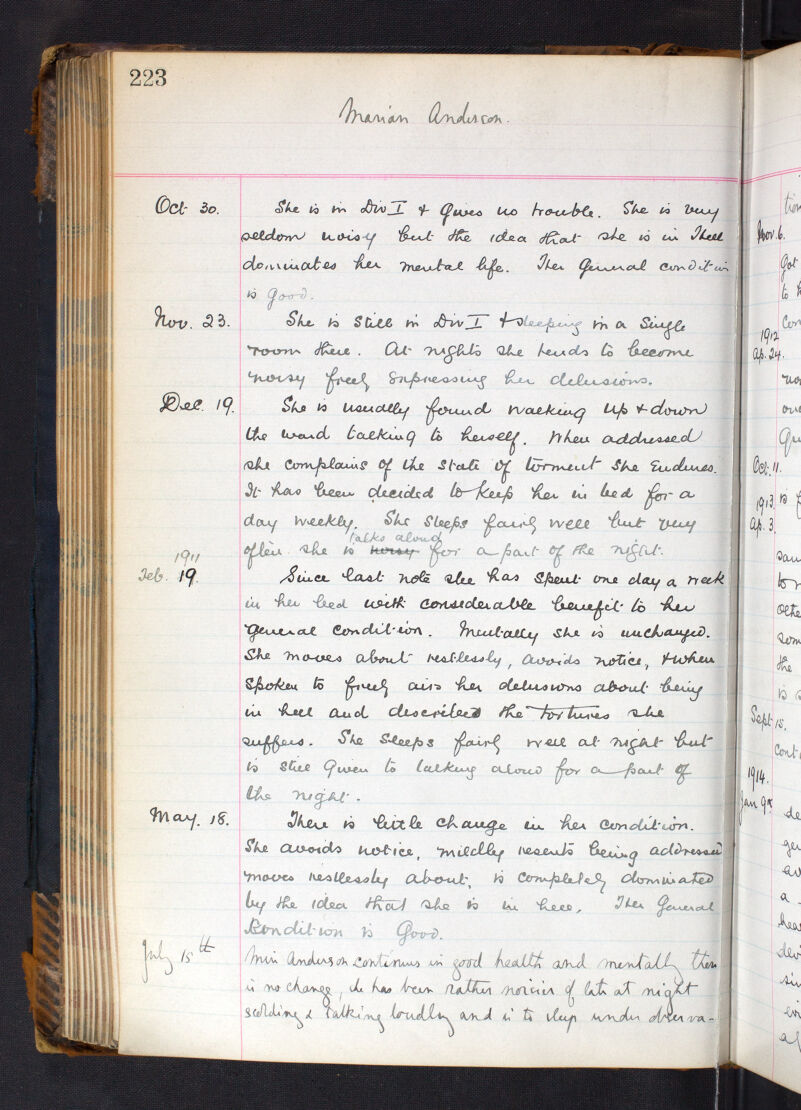 223
Marian Anderson.
Oct 30. She is in Div I & gives no trouble. She is very
seldom noisy but the idea that she is in Hell
dominates her mental life. Her General condition
is good.
Nov. 23. She is still in Div I & sleeping in a single
room there. At nights she tends to become
noisy freely expressing her delusions.
Dec. 19. She is usually found walking up & down
the ward talking to herself. When addressed
she complains of the state of torment she endures.
It has been decided to keep her in bed for a
day weekly. She sleeps fairly well but very
talks aloud
often she is noisy for a part of the night.
1911
Feb. 19. Since last note she has spent one day a week
in her bed with considerable benefit to her
general condition. Mentally she is unchanged.
She moves about restlessly, avoids notice, & when
spoken to freely airs her delusions about being
in hell and describes the tortures she
suffers. She sleeps fairly well at night but
is still given to talking aloud for a part of
the night.
May. 18. There is little change in her condition.
She avoids notice, mildly resents being addressed
moves restlessly about, is completely dominated
by the idea that she is in hell. Her General
Condition is Good.
July 15th Miss Anderson continues in good health and mentally there
is no change, she has been rather noisier of late at night
scolding & talking loudly and is to sleep under observa-
Nov 6.
got
to
1912
Ap. 24.
Oct. 11.
1913. is
Ap. 3.
the
is
Sept 15.
1914.
Jan 9th
a